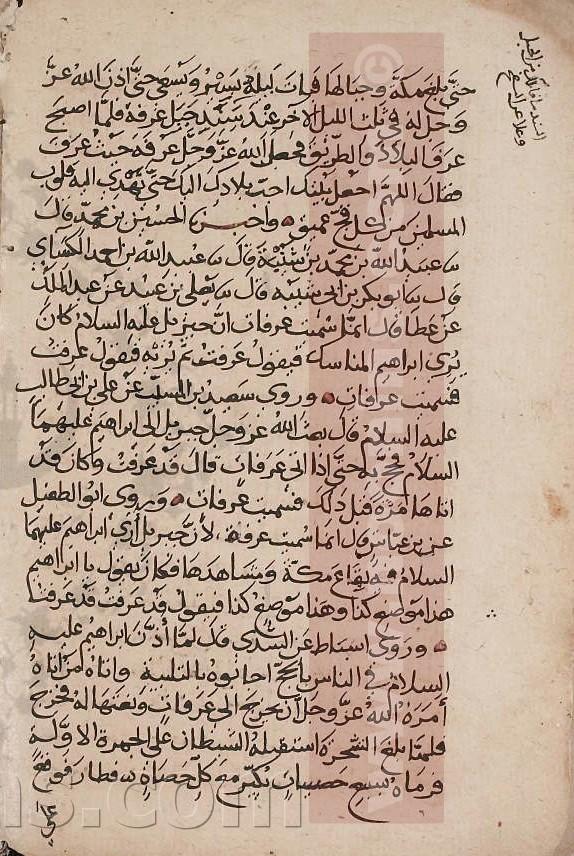 حتى بلغ مكة وجبالها فبات ليلة يسير ويسعى حتى اذن الله عز
وجل له في ثلث الليل الآخر عند سند جبل عرفة فلما اصبح
عرف البلاد والطريق فجعل الله عز وجل عرفة حيث عرف
فقال اللهم اجعل بيتك احب بلادك اليك حتى تهوى اليه قلوب
المسلمين من كل فج عميق واخبرني الحسين بن محمد قال
عبيد الله بن محمد بن شنبة قال عبيد الله بن احمد الكسائي
قال ابو بكر بن ابي شيبة قال يعلى بن عبيد عن عبد الملك
عن عطا قال انما سميت عرفات ان جبريل عليه السلام كان
يري ابراهيم المناسك فيقول عرفت ثم يريه فيقول عرفت
فسميت عرفات وروى سعيد بن المسيب عن علي بن ابي طالب
عليه السلام قال بعث الله عز وجل جبريل الى ابراهيم عليهما
السلام فحج به حتى اذا اتى عرفات قال قد عرفت وكان قد
اتاها مرة قبل ذلك فسميت عرفات وروى ابو الطفيل
عن بن عباس قال انما سميت عرفة لان جبريل أرى ابراهيم عليهما
السلام فيه بقاع مكة ومشاهدها فكان يقول يا ابراهيم
هذا موضع كذا وهذا موضع كذا فيقول قد عرفت قد عرفت
وروى اسباط عن السدي قال لما أذن ابراهيم عليه
السلام في الناس بالحج اجابوه بالتلبية واتاه من اتاه
أمره الله عز وجل ان يخرج الى عرفات ونعتها له فخرج
فلما بلغ الشجرة استقبله الشيطان على الجمرة الاولة
فرماه بسبع حصيات يكبر مع كل حصاة فطار فوقع
السند ما قابلك من الجبل
وعلا عن السفح